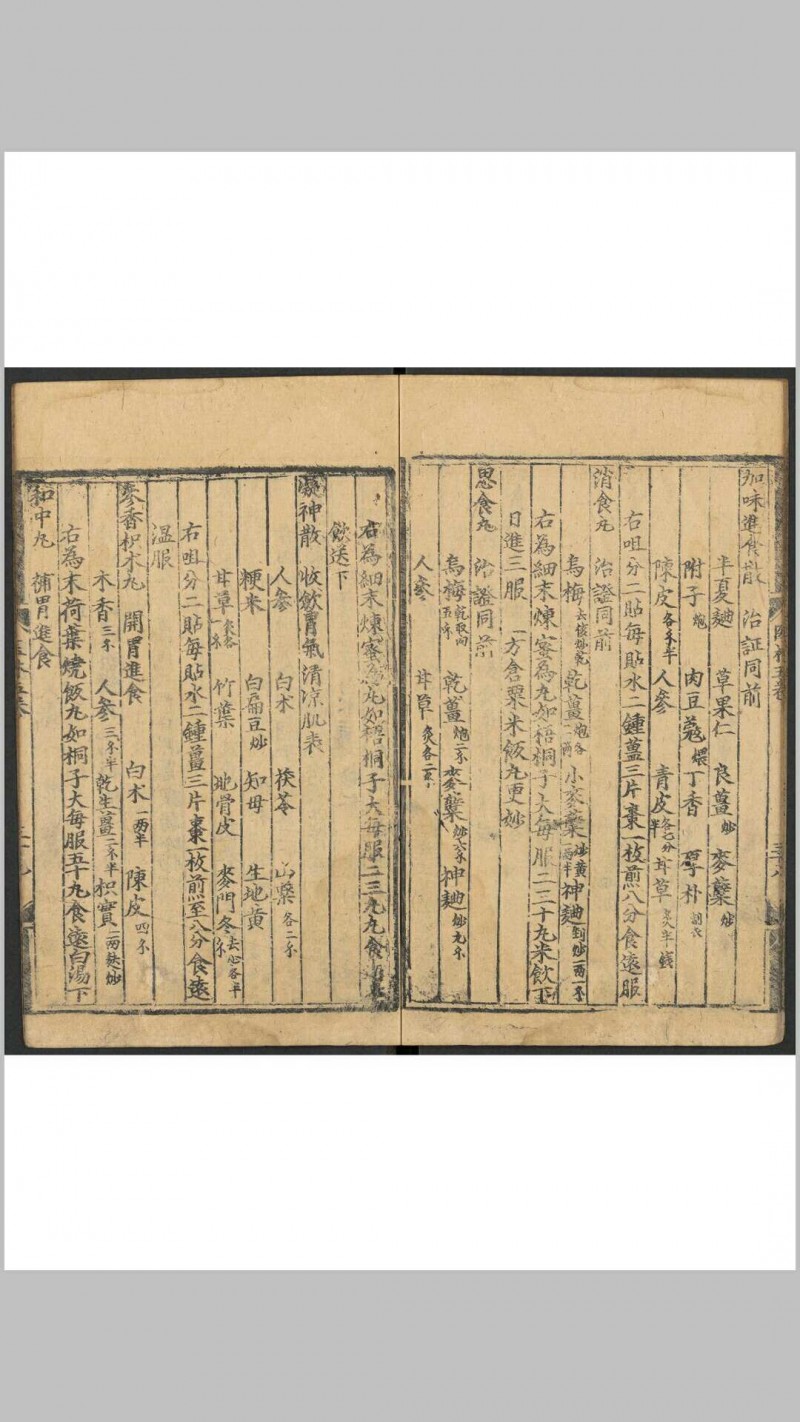 加味進食散　治証同前
半夏麯　草果仁　良薑炒　麥蘖炒
附子炮　肉豆蔻煨　丁香　厚朴
陳皮各半　人參　青皮各七分半　甘草炙半錢
右咀分二貼每貼水二鍾薑三片棗一枚煎八分食遠服
消食丸　治證同前
烏梅去核炒乾　乾薑炮各一兩　小麥蘖炒黃一兩半　神麯剉炒一兩一
右為細末煉蜜為丸如梧桐子大每服二三十丸米飲下
日進三服　一方倉粟米飯丸更妙
思食丸　治證同前
烏梅乾取肉五　乾薑炮二　麥蘖炒六　神麯炒九
人參　甘草炙各二
右為細末煉蜜為丸如梧桐子大每服二三丸食
飲送下
凝神散　收飲胃氣清涼肌表
人參　白术　茯苓　山藥各二
粳米　白扁豆炒　知母　生地黃
甘草炙各一　竹葉　地骨皮　麥門冬去心各半
右咀分二貼每貼水二鍾薑三片棗一枚煎至八分食遠
溫服
參香枳术丸　開胃進食　白术一兩半　陳皮四
木香三　人參三半　乾生薑二半　枳實一兩麸炒
右為末荷葉燒飯丸如桐子大每服五十丸食遠白湯下
和中丸　補胃進食